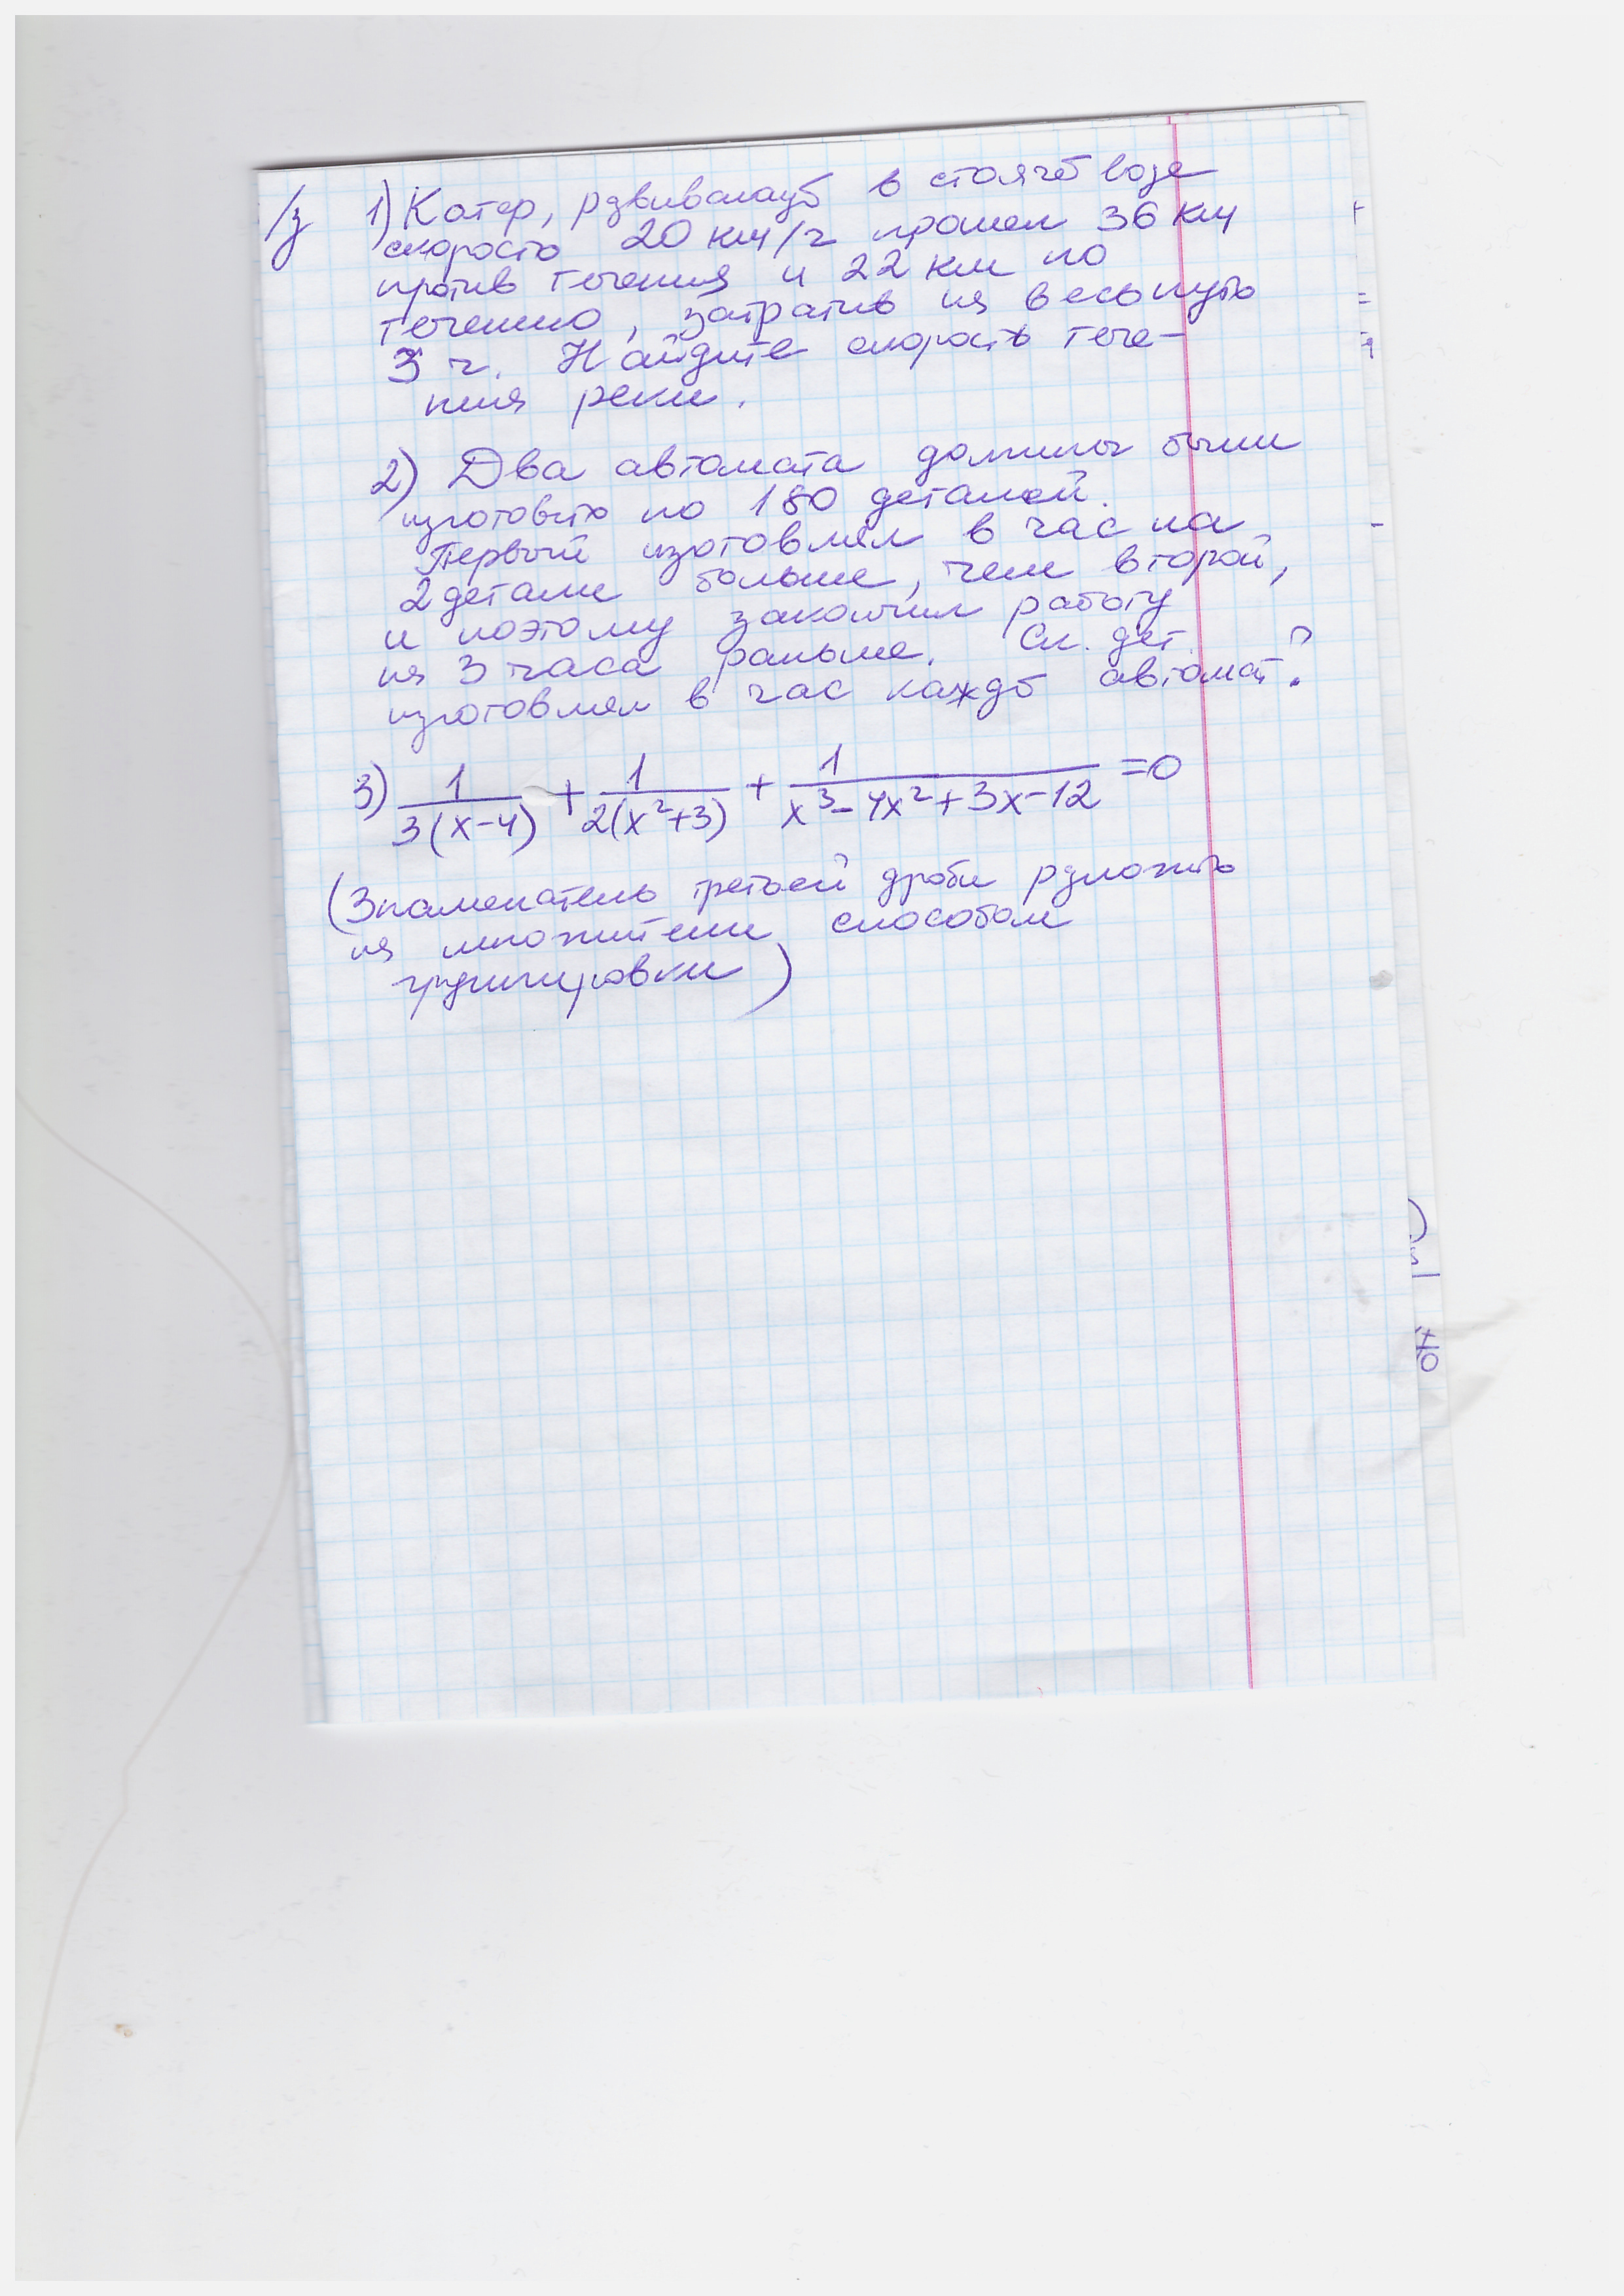 /з 1) Катер, рзвивающб в стоячеб воде
скорость 20 км/ч прошел 36 км
против течения и 22 км по
течению, затратив на весь путь
3 ч. Найдите скорость тече-
ния реки.
2) Два автомата должны были
изготовить по 180 деталей.
Первый изготовлял в час на
2 детали больше, чем второй,
и поэтому закончил работу
на 3 часа раньше. Ск. дет.
изготовлял в час каждб автомат?
3) 1/(3(x-4)) + 1/(2(x²+3)) + 1/(x³-4x²+3x-12) = 0
(Знаменатель третьей дроби рзложить
на множители способом
группировки)